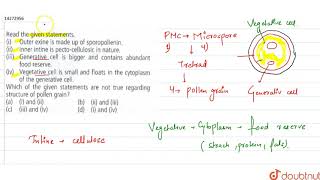 14272956
Read the given statements.
(i) Outer exine is made up of sporopollenin.
(ii) Inner intine is pecto-cellulosic in nature.
(iii) Generative cell is bigger and contains abundant
food reserve.
(iv) Vegetative cell is small and floats in the cytoplasm
of the generative cell.
Which of the given statements are not true regarding
structure of pollen grain?
(a) (i) and (ii) (b) (ii) and (iii)
(c) (iii) and (iv) (d) (i) and (iv)
Vegetative cell
PMC → Microspore
1) 4)
Tetrad
4 → pollen grain
Generative cell
Vegetative → Cytoplasm → food reserve
(starch, protein, fats)
Intine → cellulose
doubtnut